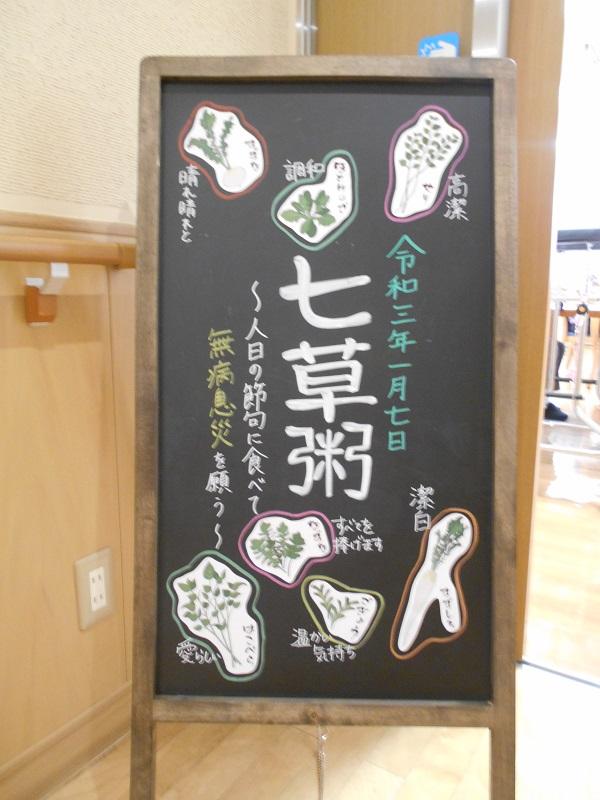 令和三年一月七日
七草粥
～人日の節句に食べて
無病息災を願う～
せり
高潔
調和
すずな
晴れ晴れと
すべてを
捧げます
潔白
すずしろ
ごぎょう
温かい
気持ち
はこべら
愛らしい